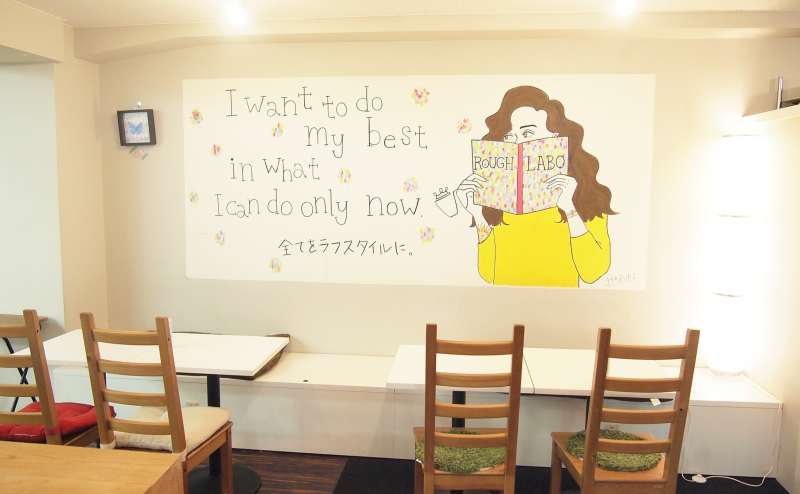 I want to do
my best
in what
I can do only now.
全てをラフスタイルに。
ROUGH LABO